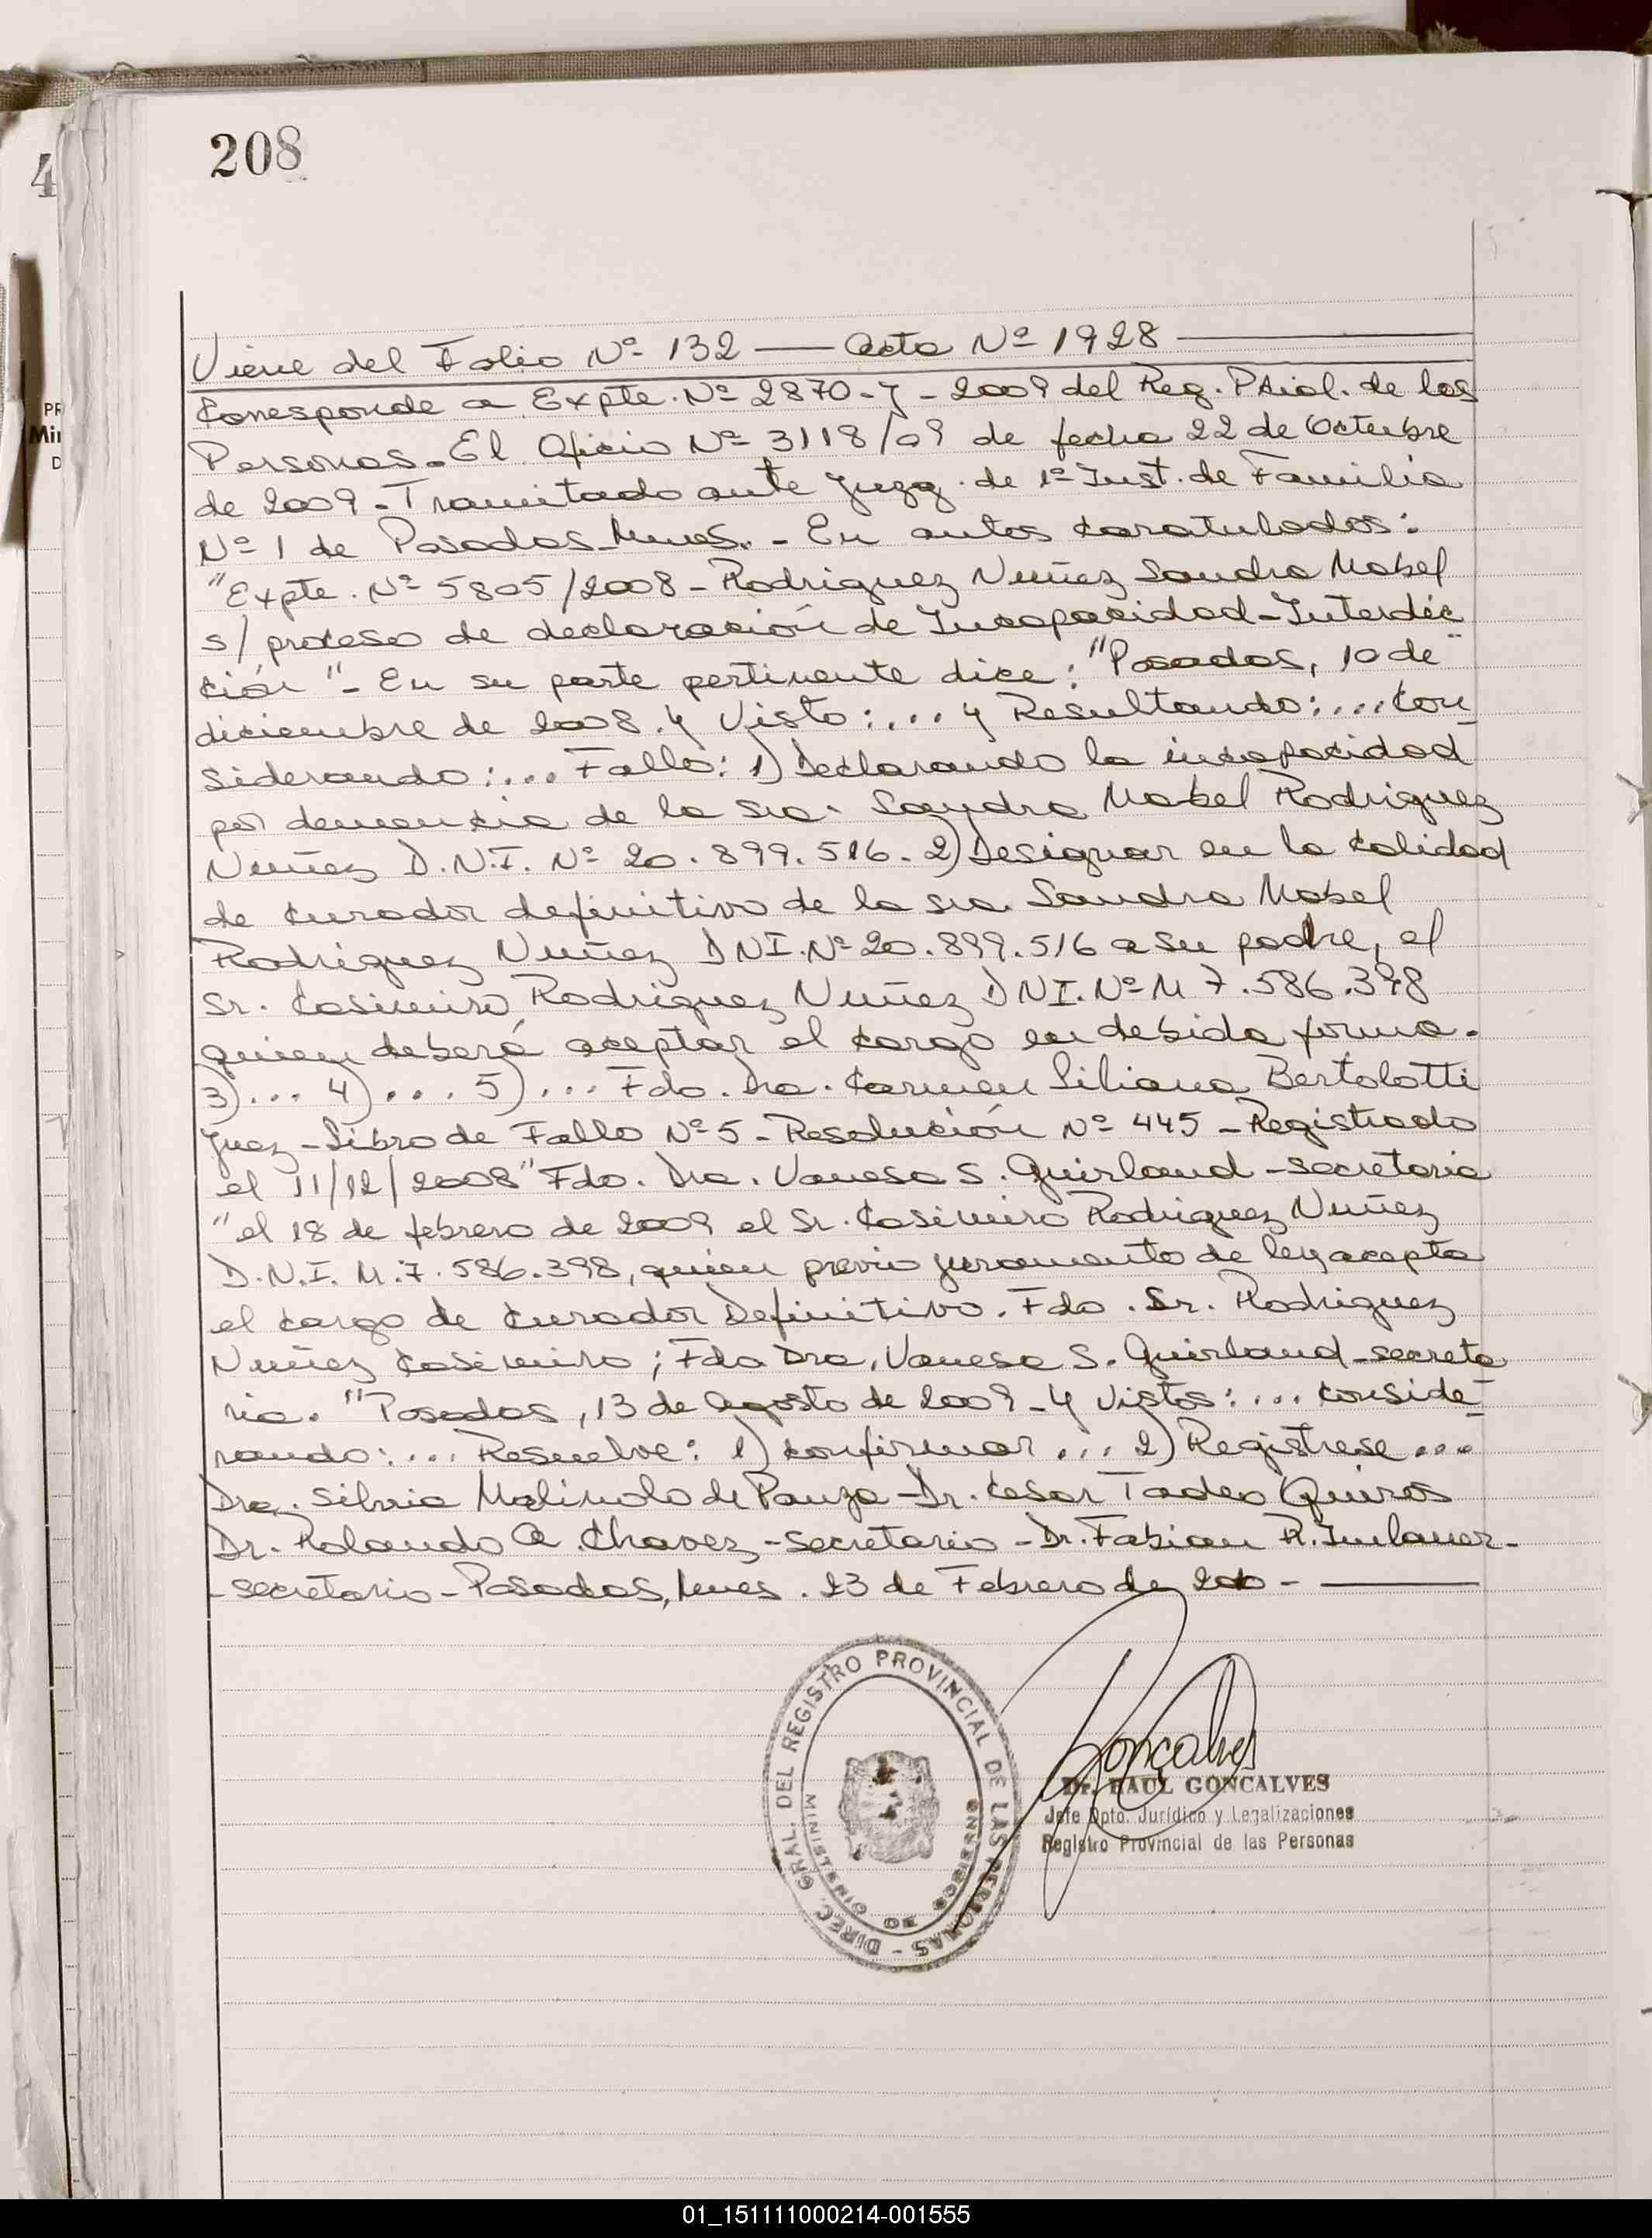 208
4
PR
Mi
D
Viene del Folio Nº 132 — Acta Nº 1928 —
Corresponde a Expte. Nº 2870-J-2009 del Reg. Pcial. de las
Personas. El Oficio Nº 3118/09 de fecha 22 de Octubre
de 2009. Tramitado ante Juzg. de 1º Inst. de Familia
Nº 1 de Posadas-Mnes. - En autos caratulados:
"Expte. Nº 5805/2008 - Rodriguez Nuñez Sandra Mabel
s/ proceso de declaración de Incapacidad-Interdic
ción" - En su parte pertinente dice: "Posadas, 10 de
diciembre de 2008. Y Visto:... y Resultando:... Con
siderando:... Fallo: 1) Declarando la incapacidad
por demencia de la sra. Sandra Mabel Rodriguez
Nuñez D.N.I. Nº 20.899.516. 2) Designar en la calidad
de curador definitivo de la sra. Sandra Mabel
Rodriguez Nuñez DNI. Nº 20.899.516 a su padre, el
Sr. Casimiro Rodriguez Nuñez DNI. Nº M 7.586.398
quien deberá aceptar el cargo en debida forma.
3)... 4)... 5)... Fdo. Dra. Carmen Liliana Bertolotti
Juez - Libro de Fallo Nº 5 - Resolución Nº 445 - Registrado
el 11/12/2008" Fdo. Dra. Vanesa S. Guirland - secretaria
"el 18 de febrero de 2009 el Sr. Casimiro Rodriguez Nuñez
D.N.I. M. 7.586.398, quien previo juramento de ley acepta
el cargo de Curador Definitivo. Fdo. Sr. Rodriguez
Nuñez Casimiro; Fdo Dra. Vanesa S. Guirland - secreta
ria. "Posadas, 13 de Agosto de 2009 - Y Vistos:... Conside
rando:... Resuelve: 1) Confirmar... 2) Registrese...
Dra. Silvia Malinolo de Panza - Dr. Cesar Tadeo Quiros
Dr. Rolando A. Chavez - secretario - Dr. Fabian R.
- secretario - Posadas, Mnes. 23 de Febrero de 2010 - —
DIREC. GRAL. DEL REGISTRO PROVINCIAL DE LAS PERSONAS -
MINISTERIO DE GOBIERNO
Goncalves
Dr. RAUL GONCALVES
Jefe Dpto. Jurídico y Legalizaciones
Registro Provincial de las Personas
01_151111000214-001555